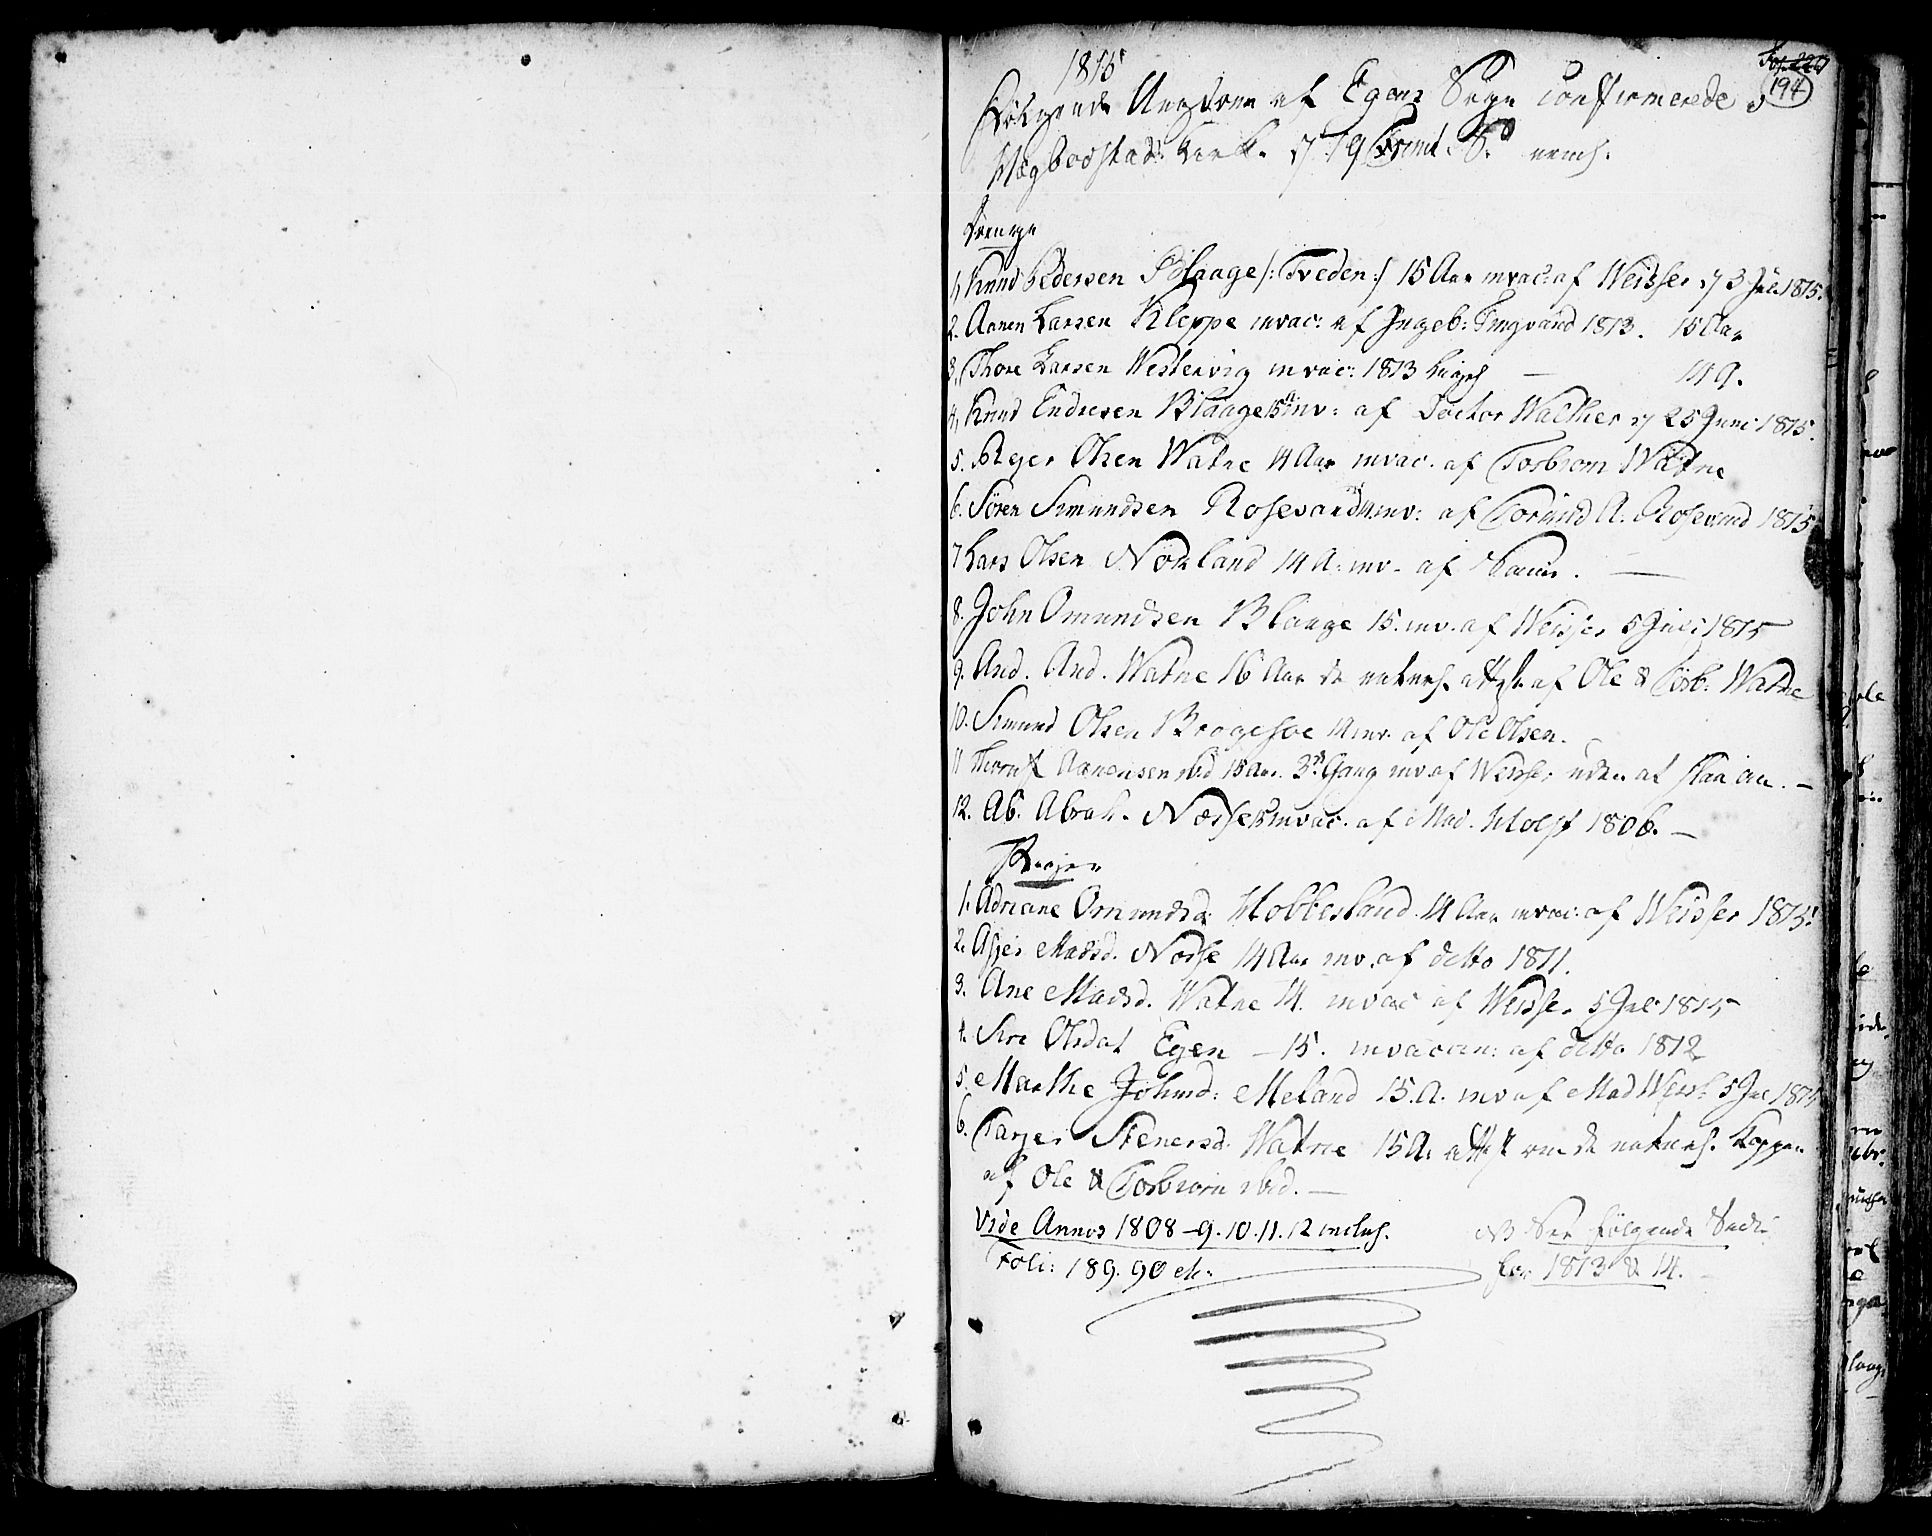 Fol. 220
194
1815
Følgende Ungdom af Egens Sogn confirmerede i
Hægbostad Kirk. d 19 Trinit. S. nemh.
Drenge
1, Knud Pedersen Blaage /: Tveden :/ 15 Aar invac: af Weisser d 3 Juli 1815.
2. Aanen Larsen Kleppe invac: af Ingeb: Tingvand 1813. 15 Aar
3, Thore Larsen Westervig invac: 1813 — 14 A.
4, Knud Endresen Blaage 15 A. inv: af Doctor Walther d 25 Juni 1815.
5. Reyer Olsen Watne 14 Aar invac. af Torbiorn Watne
6. Sören Simundsen Rosevand 14. inv: af A. Rosevand 1815
7 Lars Olsen Nörland 14 A: inv. af —
8. John Omundsen Blaage 15. inv. af Weisser 5 Juli 1815
9. And. And. Watne 16 Aar de naturl. attest af Ole & Torb: Watne
10. Simund Olsen Brogesoe 14 inv. af Ole Olsen.
11 Aanensen ibid 15 Aar. 3de Gang inv af Weisser uden at slaa an. —
12. Ab. Abrah. Nordse 15 invac. af Mad. Holst 1806. —
Piger
1. Adriane Omundsd: Hobbesland. 14 Aar invac: af Weisser 1815.
2. Asjer Madsd. Nodse 14 Aar inv. af detto 1811.
3. Ane Madsd. Watne 14. invac af Weisser 5 Juli 1815
4. Siri Olsdat Egen — 15. invaccin: af detto 1812
5. Marthe Johnsd: Meland 15. A. inv af Mad Weiss: 5 Jul 1815
6. Tarjer Stenersd. Watne 15 A: attest om de naturl. Kopper
af Ole & Torbiorn ibid. —
Vide Annos 1808 – 9. 10. 11. 12 inclus.
Foli: 189. 90 etc.
NB See følgende Side
for 1813 & 14.